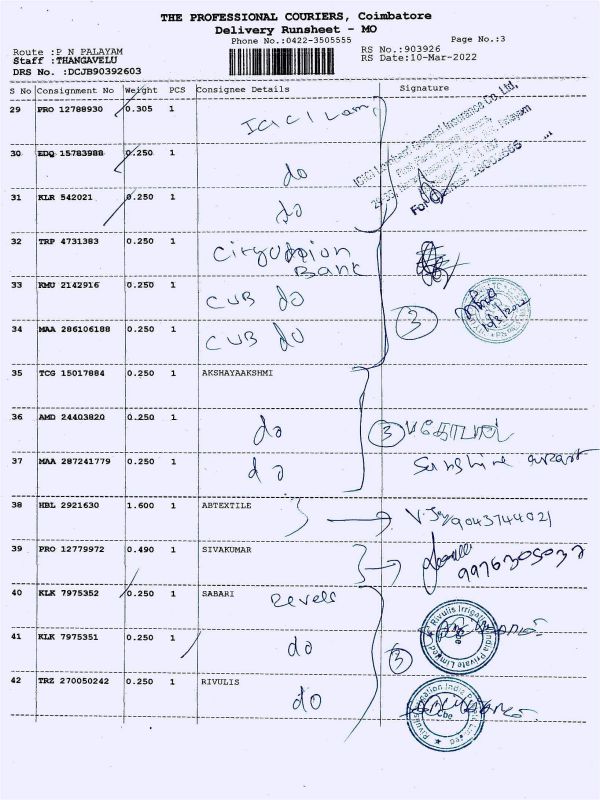 THE PROFESSIONAL COURIERS, Coimbatore
Delivery Runsheet - MO
Phone No.:0422-3505555 Page No.:3
Route :P N PALAYAM RS No.:903926
Staff :THANGAVELU RS Date:10-Mar-2022
DRS No. :DCJB90392603
S No Consignment No Weight PCS Consignee Details Signature
29 PRO 12788930 0.305 1 ICICI Lam
ICICI Lombard General Insurance Co. Ltd,
30 EDQ 15783988 0.250 1 do
31 KLR 542021 0.250 1 do
32 TRP 4731383 0.250 1 City Union
Bank
33 KMU 2142916 0.250 1 CUB do
34 MAA 286106188 0.250 1 CUB do 3
10/3/2022
35 TCG 15017884 0.250 1 AKSHAYAAKSHMI
36 AMD 24403820 0.250 1 do 3
37 MAA 287241779 0.250 1 do Sunshine
38 HBL 2921630 1.600 1 ABTEXTILE 9043744021
39 PRO 12779972 0.490 1 SIVAKUMAR 9976305032
40 KLK 7975352 0.250 1 SABARI
Rivulis Irrigation India Private Limited
41 KLK 7975351 0.250 1 do 3
42 TRZ 270050242 0.250 1 RIVULIS do
Rivulis Irrigation India Private Limited
Cbe